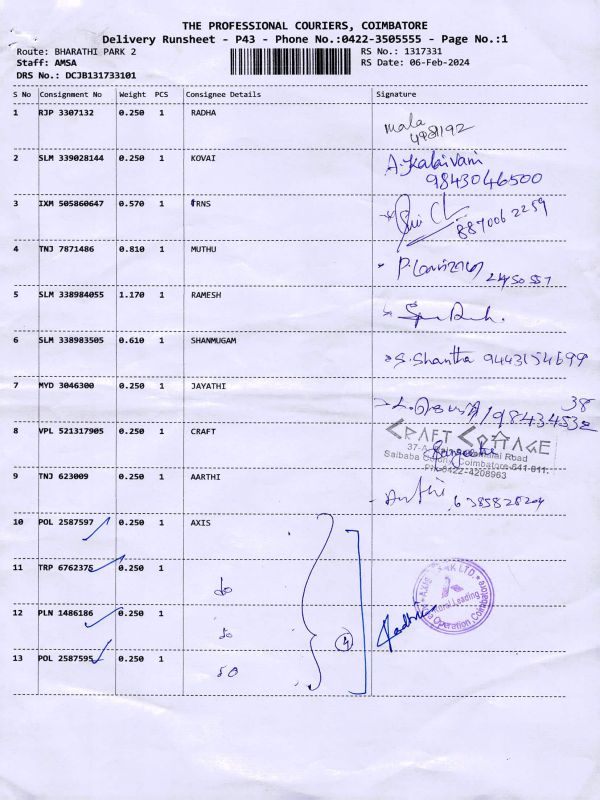 THE PROFESSIONAL COURIERS, COIMBATORE
Delivery Runsheet - P43 - Phone No.:0422-3505555 - Page No.:1
Route: BHARATHI PARK 2 RS No.: 1317331
Staff: AMSA RS Date: 06-Feb-2024
DRS No.: DCJB131733101
S No Consignment No Weight PCS Consignee Details Signature
1 RJP 3307132 0.250 1 RADHA
mala
2 SLM 339028144 0.250 1 KOVAI A.Kalaivani
9843046500
3 IXM 505860647 0.570 1 TRNS
887006 2259
4 TNJ 7871486 0.810 1 MUTHU
5 SLM 338984055 1.170 1 RAMESH
6 SLM 338983505 0.610 1 SHANMUGAM S.Shantha 9443154699
7 MYD 3046300 0.250 1 JAYATHI
38
8 VPL 521317905 0.250 1 CRAFT CRAFT COTTAGE
Saibaba Colony, Coimbatore-641 011.
PH:0422-4208963
9 TNJ 623009 0.250 1 AARTHI
10 POL 2587597 0.250 1 AXIS
11 TRP 6762375 0.250 1 do
12 PLN 1486186 0.250 1 do
4
13 POL 2587595 0.250 1 do